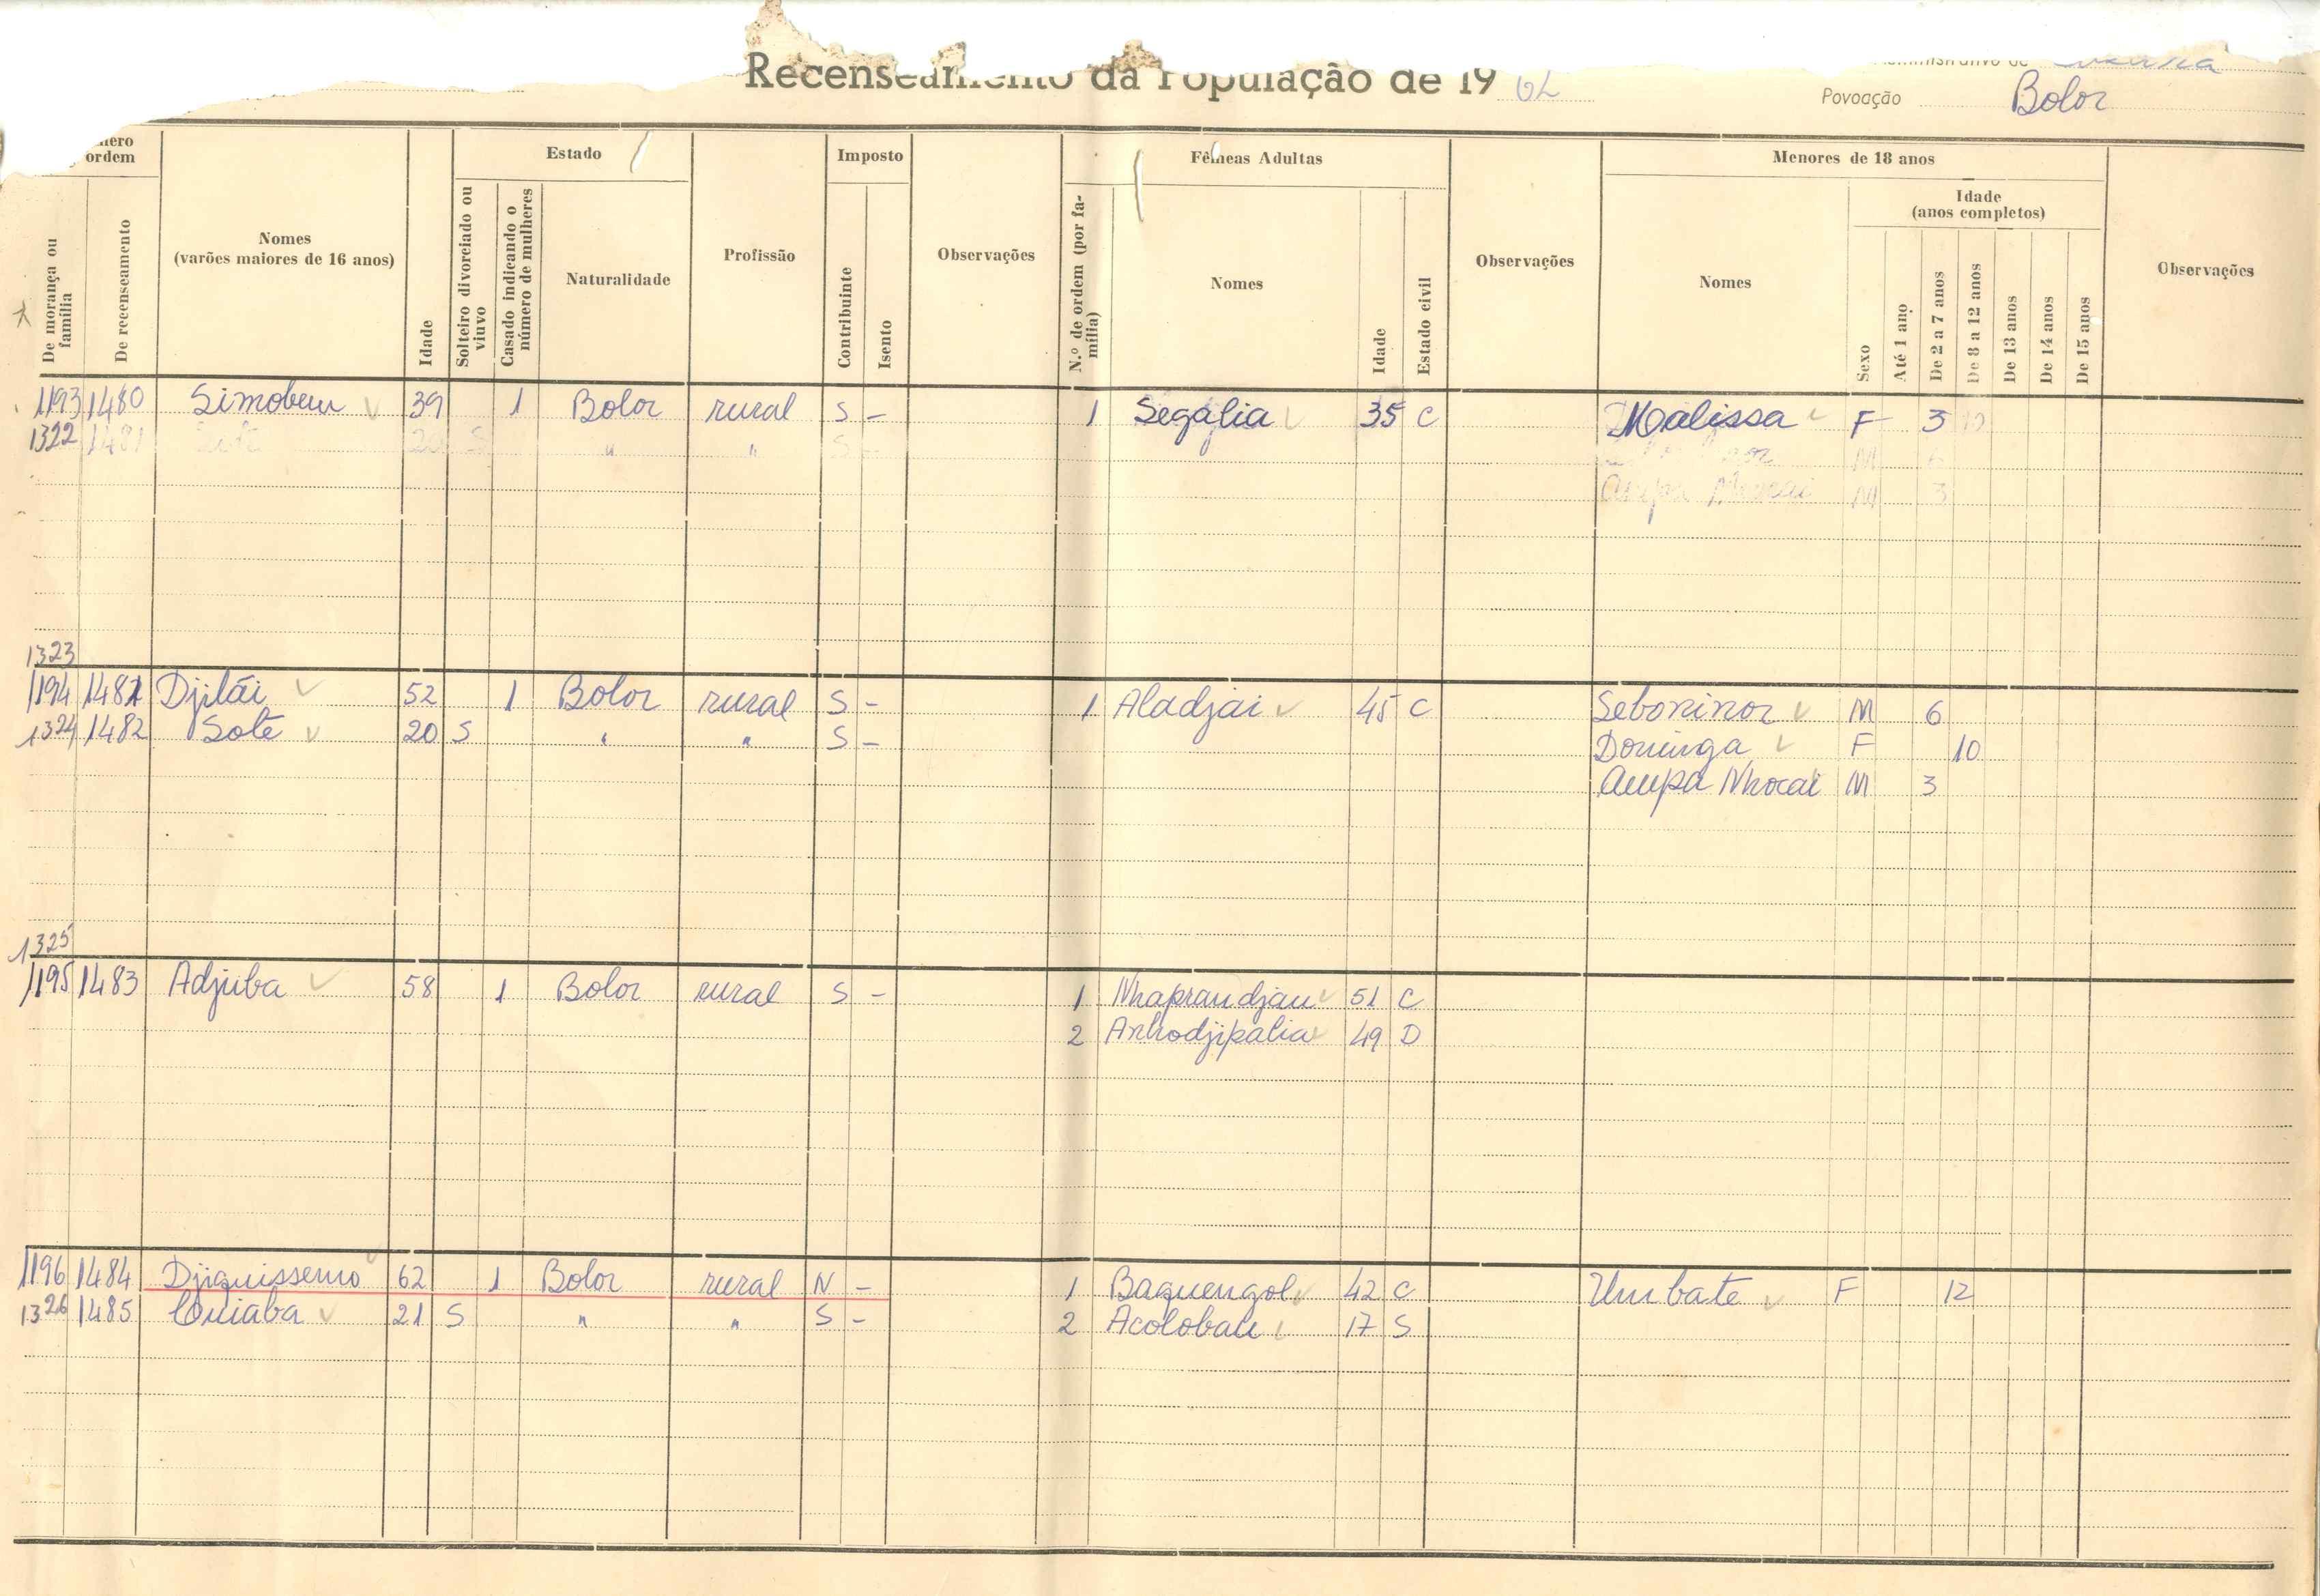 Recenseamento da População de 19 62
Povoação Bolor
ordem
De morança ou família
De recenseamento
Nomes
(varões maiores de 16 anos)
Idade
Estado
Solteiro divorciado ou viuvo
Casado indicando o número de mulheres
Naturalidade
Profissão
Imposto
Contribuinte
Isento
Observações
Fêmeas Adultas
N.º de ordem (por família)
Nomes
Idade
Estado civil
Observações
Menores de 18 anos
Nomes
Sexo
Idade
(anos completos)
Até 1 ano
De 2 a 7 anos
De 8 a 12 anos
De 13 anos
De 14 anos
De 15 anos
Observações
1193 1480 Simobem 39 1 Bolor rural S - 1 Segalia 35 C Malissa F 3
1322 1481 20 S " " S - M
Ampa Nhocai M 3
1323
1194 1481 Djilái 52 1 Bolor rural S - 1 Aladjai 45 C Seboninor M 6
1324 1482 Sote 20 S " " S - Dominga F 10
Ampa Nhocai M 3
1325
1195 1483 Adjuba 58 1 Bolor rural S - 1 Nhaprandjau 51 C
2 Anhodjipalia 49 D
1196 1484 Djiquissemo 62 1 Bolor rural N - 1 Baquengol 42 C Umbate F 12
1326 1485 21 S " " S - 2 17 S